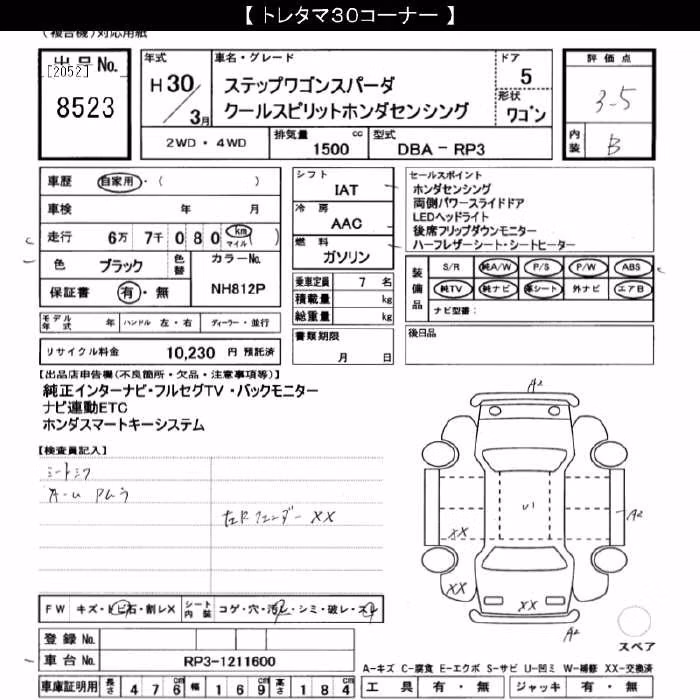 【 トレタマ30コーナー 】
(複合機)対応用紙
出品No.
[2052]
8523
年式
H 30 / 3月
車名・グレード
ステップワゴンスパーダ
クールスピリットホンダセンシング
ドア
5
形状
ワゴン
2WD ・ 4WD
排気量 1500 cc
型式 DBA - RP3
評価点
3-5
内装 B
車歴 自家用 ・ ( )
車検 年 月
走行 6万 7千 0 8 0 km マイル ( )
色 ブラック 色替
カラーNo.
NH812P
保証書 有 ・ 無
シフト
IAT
冷房
AAC
燃料
ガソリン
乗車定員 7 名
積載量 kg
総重量 kg
書類期限
月 日
セールスポイント
ホンダセンシング
両側パワースライドドア
LEDヘッドライト
後席フリップダウンモニター
ハーフレザーシート・シートヒーター
装備品
S/R 純A/W P/S P/W ABS
純TV 純ナビ 革シート 外ナビ エアB
ナビ型番:
後日品
モデル年式 年 ハンドル 左・右 ディーラー・並行
リサイクル料金 10,230 円 預託済
【出品店申告欄(不良箇所・欠品・注意事項等)】
純正インターナビ・フルセグTV ・バックモニター
ナビ連動ETC
ホンダスマートキーシステム
【検査員記入】
シートシワ
A-U
左R フェンダー XX
A2
U1
A2
XX
XX
XX
A2
スペア
FW キズ・トビ石・割レX
シート内装 コゲ・穴・汚レ・シミ・破レ・スレ
登録No.
車台No. RP3-1211600
車庫証明用 長さ 4 7 6 幅 1 6 9 高さ 1 8 4
A-キズ C-腐食 E-エクボ S-サビ U-凹ミ W-補修 XX-交換済
工具 有 ・ 無 ジャッキ 有 ・ 無